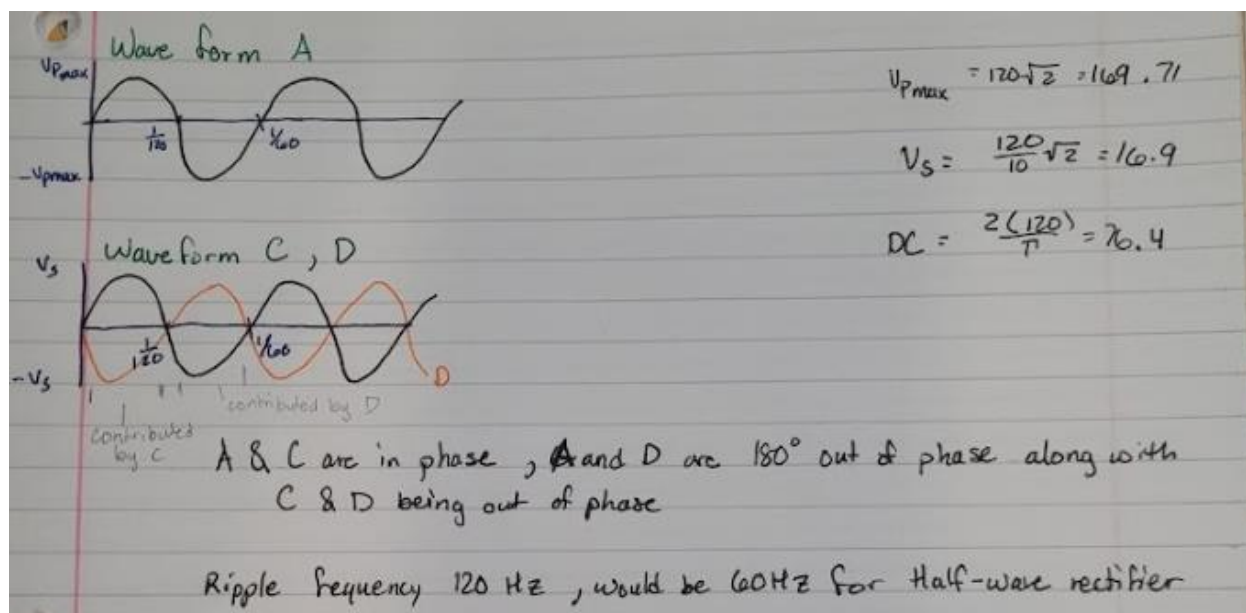 Wave form A
Vpmax
-Vpmax
1/120
1/60
Vpmax = 120√2 = 169.71
Vs = 120/10 √2 = 16.9
DC = 2(120)/π = 76.4
Waveform C, D
Vs
-Vs
1/120
1/60
D
contributed by C
contributed by D
A & C are in phase, A and D are 180° out of phase along with
C & D being out of phase
Ripple frequency 120 Hz, would be 60Hz for Half-wave rectifier